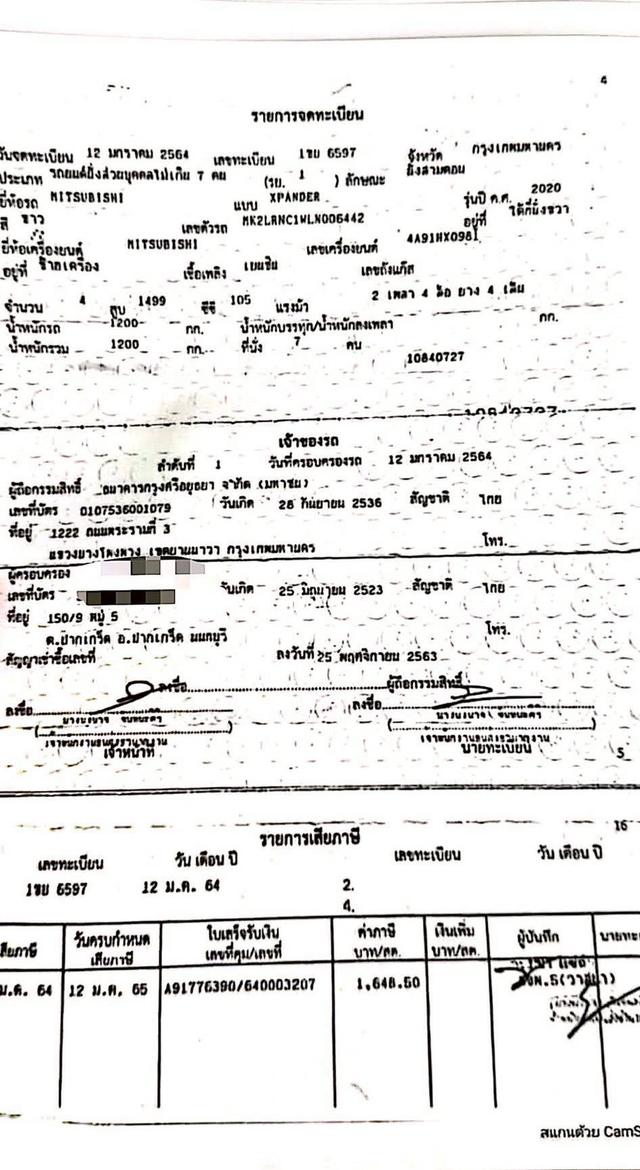 4
รายการจดทะเบียน
วันจดทะเบียน 12 มกราคม 2564 เลขทะเบียน 1ขบ 6597 จังหวัด กรุงเทพมหานคร
ประเภท รถยนต์นั่งส่วนบุคคลไม่เกิน 7 คน (รย. 1 ) ลักษณะ นั่งสามตอน
ยี่ห้อรถ MITSUBISHI แบบ XPANDER รุ่นปี ค.ศ. 2020
สี ขาว เลขตัวรถ MK2LRNC1WLN006442 อยู่ที่ ใต้ที่นั่งขวา
ยี่ห้อเครื่องยนต์ MITSUBISHI เลขเครื่องยนต์ 4A91HX0981
อยู่ที่ ซ้ายเครื่อง เชื้อเพลิง เบนซิน เลขถังแก๊ส
จำนวน 4 สูบ 1499 ซีซี 105 แรงม้า 2 เพลา 4 ล้อ ยาง 4 เส้น
น้ำหนักรถ 1200 กก. น้ำหนักบรรทุก/น้ำหนักลงเพลา กก.
น้ำหนักรวม 1200 กก. ที่นั่ง 7 คน
10840727
เจ้าของรถ
ลำดับที่ 1 วันที่ครอบครองรถ 12 มกราคม 2564
ผู้ถือกรรมสิทธิ์ ธนาคารกรุงศรีอยุธยา จำกัด (มหาชน)
เลขที่บัตร 0107536001079 วันเกิด 28 กันยายน 2536 สัญชาติ ไทย
ที่อยู่ 1222 ถนนพระรามที่ 3
แขวงบางโพงพาง เขตยานนาวา กรุงเทพมหานคร โทร.
ผู้ครอบครอง
เลขที่บัตร วันเกิด 25 มิถุนายน 2523 สัญชาติ ไทย
ที่อยู่ 150/9 หมู่ 5
ต.ปากเกร็ด อ.ปากเกร็ด นนทบุรี โทร.
สัญญาเช่าซื้อเลขที่ ลงวันที่ 25 พฤศจิกายน 2563
ลงชื่อ ผู้ถือกรรมสิทธิ์
ลงชื่อ ลงชื่อ
เจ้าหน้าที่ นายทะเบียน
5
16
รายการเสียภาษี
เลขทะเบียน วัน เดือน ปี เลขทะเบียน วัน เดือน ปี
1ขบ 6597 12 ม.ค. 64 2.
4.
เสียภาษี วันครบกำหนด เสียภาษี ใบเสร็จรับเงิน เลขที่คุม/เลขที่ ค่าภาษี บาท/สต. เงินเพิ่ม บาท/สต. ผู้บันทึก นายทะ
ม.ค. 64 12 ม.ค. 65 A91776390/640003207 1,648.50
สแกนด้วย CamS